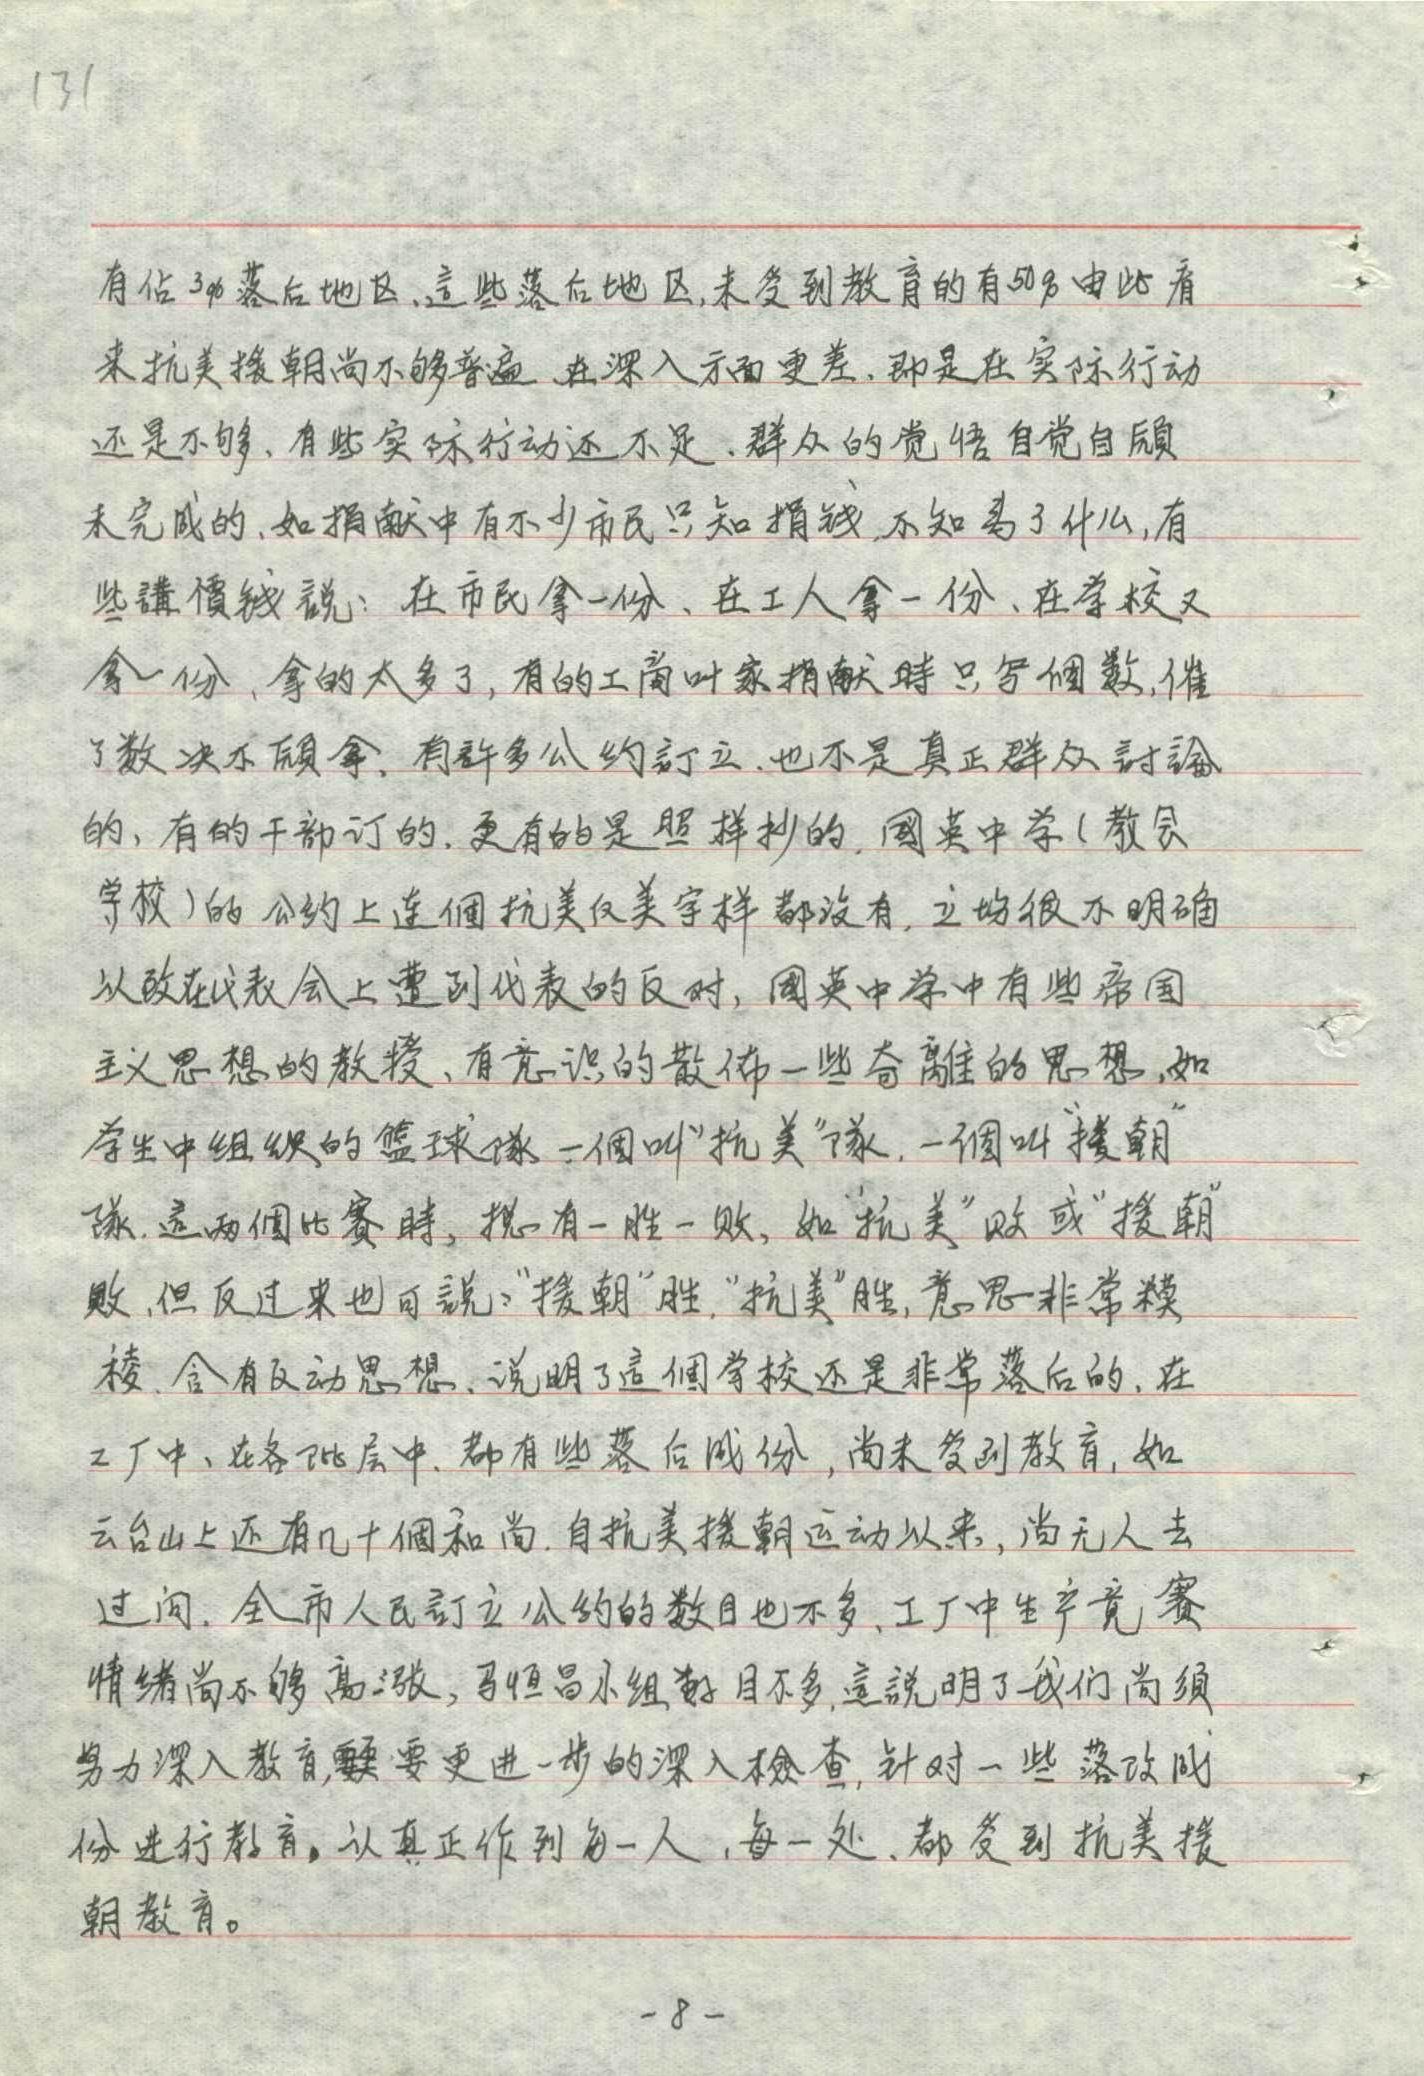 131
有佔3%落后地区、這些落后地区,未受到教育的有50%由此看
来抗美援朝尚不够普遍、在深入方面更差、即是在实际行动
还是不够、有些实际行动还不是、群众的觉悟自觉自願
未完成的、如捐献中有不少市民只知捐钱,不知為了什么,有
些講價銭說:在市民拿一份、在工人拿一份、在学校又
拿一份、拿的太多了,有的工商叶家捐献時只写個数,催
了数次不願拿、有許多公约訂立、也不是真正群众討論
的,有的干部订的、更有的是照样抄的、國英中学(教会
学校)的公约上連個抗美仅美字样都没有,立場很不明确
以致在代表会上遭到代表的反对,國英中学中有些帝国
主义思想的教授、有意识的散佈一些奇離的思想,如
学生中组织的篮球隊一個叫"抗美"隊、一個叫"援朝"
隊、這両個比賽時,揔有一胜一败,如"抗美"败或"援朝"
败、但反过来也可說:"援朝"胜,"抗美"胜,意思非常模
棱、含有反动思想、说明了這個学校还是非常落后的、在
工厂中、在各阶层中、都有些落后成份,尚未受到教育,如
云台山上还有几十個和尚、自抗美援朝运动以来,尚无人去
过问、全市人民訂立公约的数目也不多、工厂中生产竟賽
情绪尚不够高漲,马恒昌小组数目不多,這說明了我们尚須
努力深入教育,要更进一步的深入檢查,针对一些落改成
份进行教育。认真正作到每一人、每一处、都受到抗美援
朝教育。
-8-